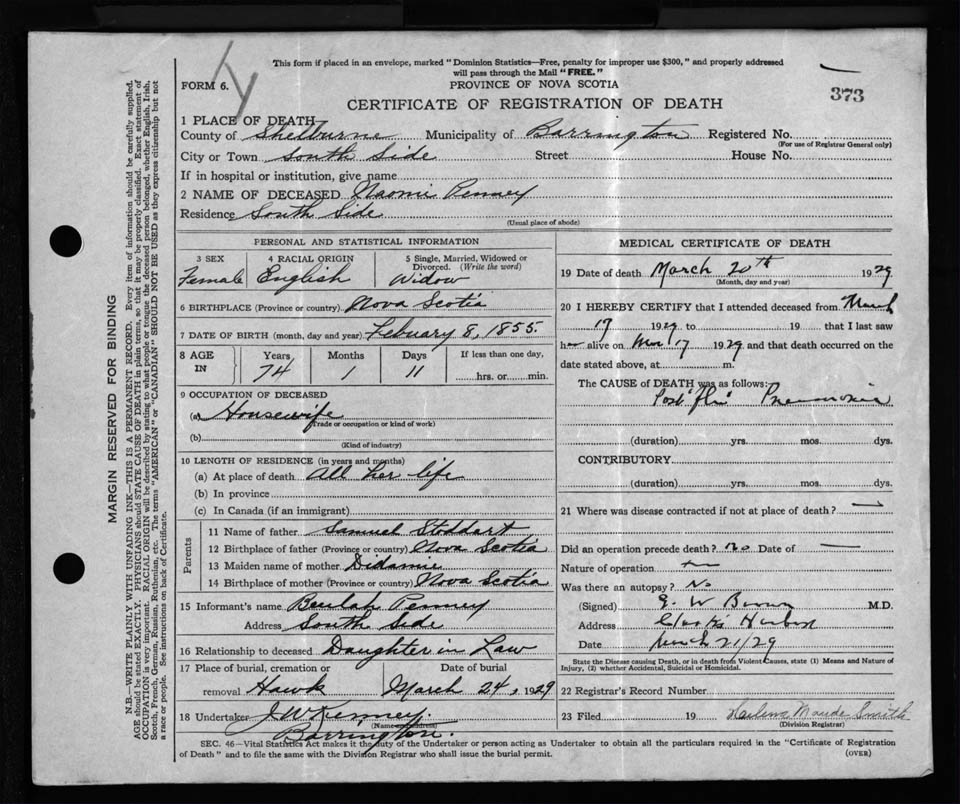 This form if placed in an envelope, marked "Dominion Statistics—Free, penalty for improper use $300," and properly addressed
will pass through the Mail "FREE."
FORM 6.
PROVINCE OF NOVA SCOTIA
373
CERTIFICATE OF REGISTRATION OF DEATH
1 PLACE OF DEATH
County of Shelburne Municipality of Barrington Registered No.
(For use of Registrar General only)
City or Town South Side Street House No.
If in hospital or institution, give name
2 NAME OF DECEASED Naomi Penney
Residence South Side
(Usual place of abode)
PERSONAL AND STATISTICAL INFORMATION
3 SEX 4 RACIAL ORIGIN 5 Single, Married, Widowed or Divorced. (Write the word)
Female English Widow
6 BIRTHPLACE (Province or country) Nova Scotia
7 DATE OF BIRTH (month, day and year) Febuary 8, 1855
8 AGE IN Years Months Days If less than one day,
74 1 11 hrs. or min.
9 OCCUPATION OF DECEASED
(a) Housewife
(Trade or occupation or kind of work)
(b)
(Kind of industry)
10 LENGTH OF RESIDENCE (in years and months)
(a) At place of death All her life
(b) In province
(c) In Canada (if an immigrant)
Parents
11 Name of father Samuel Stoddart
12 Birthplace of father (Province or country) Nova Scotia
13 Maiden name of mother Didamie
14 Birthplace of mother (Province or country) Nova Scotia
15 Informant's name Beulah Penney
Address South Side
16 Relationship to deceased Daughter in Law
17 Place of burial, cremation or removal Hawk Date of burial March 24, 1929
18 Undertaker J W Kenney
(Name and address)
Barrington.
MEDICAL CERTIFICATE OF DEATH
19 Date of death March 20th 1929
(Month, day and year)
20 I HEREBY CERTIFY that I attended deceased from March
17 1929 to 19 that I last saw
her alive on Mar 17 1929 and that death occurred on the
date stated above, at m.
The CAUSE of DEATH was as follows:
Post "flu" Pneumonia
(duration) yrs. mos. dys.
CONTRIBUTORY
(duration) yrs. mos. dys.
21 Where was disease contracted if not at place of death? —
Did an operation precede death? no Date of —
Nature of operation
Was there an autopsy? No
(Signed) G. W M.D.
Address Clarks Harbor
Date March 21/29
State the Disease causing Death, or in death from Violent Causes, state (1) Means and Nature of
Injury, (2) whether Accidental, Suicidal or Homicidal.
22 Registrar's Record Number
23 Filed 19 Maude Smith
(Division Registrar)
SEC. 46—Vital Statistics Act makes it the duty of the Undertaker or person acting as Undertaker to obtain all the particulars required in the "Certificate of Registration
of Death" and to file the same with the Division Registrar who shall issue the burial permit.
(OVER)
MARGIN RESERVED FOR BINDING
N.B.—WRITE PLAINLY WITH UNFADING INK—THIS IS A PERMANENT RECORD. Every item of information should be carefully supplied.
AGE should be stated EXACTLY. PHYSICIANS should STATE CAUSE OF DEATH in plain terms, so that it may be properly classified. Exact statement of
OCCUPATION is very important. RACIAL ORIGIN will be described by stating to what people or tongue the deceased person belonged, whether English, Irish,
Scotch, French, German, Russian, Ruthenian, etc. The terms "AMERICAN" or "CANADIAN" SHOULD NOT BE USED as they express citizenship but not
a race or people. See instructions on back of Certificate.